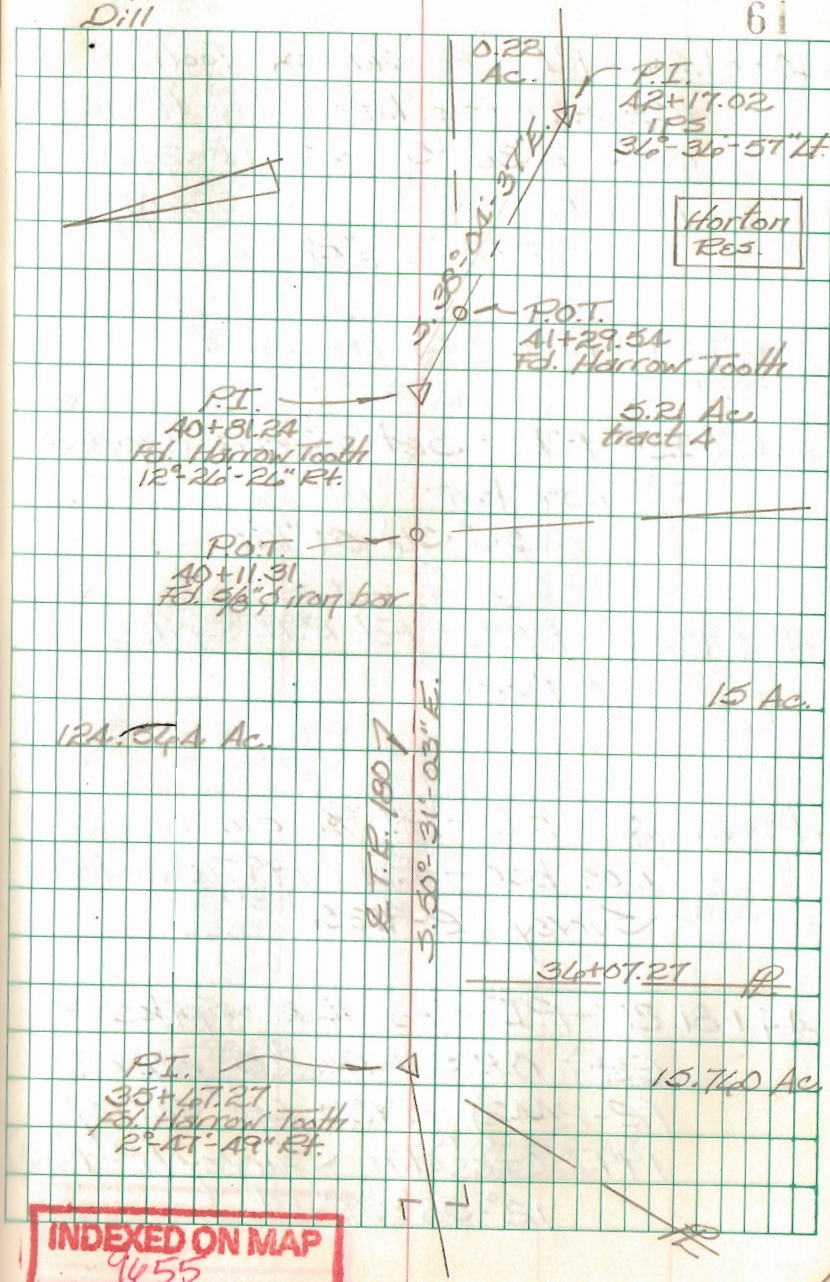 Dill
61
0.22
Ac.
P.I.
42+17.02
IPS
36°-36'-57" Lt.
S. 38°-04'-37" E.
Horton
Res.
P.O.T.
41+29.54
Fd. Harrow Tooth
P.I.
40+81.24
Fd. Harrow Tooth
12°-26'-26" Rt.
5.21 Ac.
tract 4
P.O.T.
40+11.31
Fd. 5/8"ø iron bar
15 Ac.
124.564 Ac.
℄ T.R. 1807
S. 50°-31'-03" E.
36+07.27 ⅊
P.I.
35+67.27
Fd. Harrow Tooth
2°-47'-49" Rt.
15.760 Ac
⅊
INDEXED ON MAP
9655